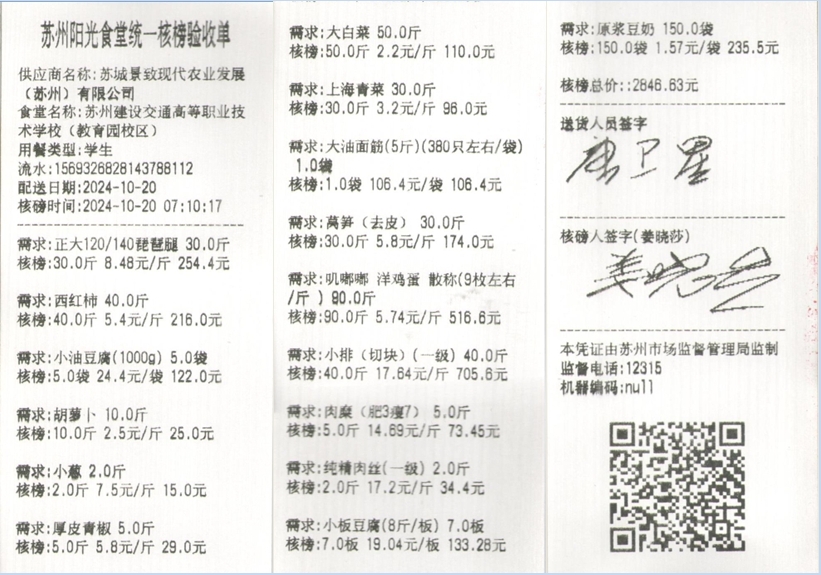 苏州阳光食堂统一核榜验收单
供应商名称:苏城景致现代农业发展
（苏州）有限公司
食堂名称:苏州建设交通高等职业技
术学校（教育园校区）
用餐类型:学生
流水:1569326828143788112
配送日期:2024-10-20
核磅时间:2024-10-20 07:10:17
需求:正大120/140琵琶腿 30.0斤
核榜:30.0斤 8.48元/斤 254.4元
需求:西红柿 40.0斤
核榜:40.0斤 5.4元/斤 216.0元
需求:小油豆腐(1000g) 5.0袋
核榜:5.0袋 24.4元/袋 122.0元
需求:胡萝卜 10.0斤
核榜:10.0斤 2.5元/斤 25.0元
需求:小葱 2.0斤
核榜:2.0斤 7.5元/斤 15.0元
需求:厚皮青椒 5.0斤
核榜:5.0斤 5.8元/斤 29.0元
需求:大白菜 50.0斤
核榜:50.0斤 2.2元/斤 110.0元
需求:上海青菜 30.0斤
核榜:30.0斤 3.2元/斤 96.0元
需求:大油面筋(5斤)(380只左右/袋)
1.0袋
核榜:1.0袋 106.4元/袋 106.4元
需求:莴笋（去皮） 30.0斤
核榜:30.0斤 5.8元/斤 174.0元
需求:叽嘟嘟 洋鸡蛋 散称(9枚左右
/斤 ) 90.0斤
核榜:90.0斤 5.74元/斤 516.6元
需求:小排（切块）(一级) 40.0斤
核榜:40.0斤 17.64元/斤 705.6元
需求:肉糜（肥3瘦7） 5.0斤
核榜:5.0斤 14.69元/斤 73.45元
需求:纯精肉丝(一级) 2.0斤
核榜:2.0斤 17.2元/斤 34.4元
需求:小板豆腐(8斤/板) 7.0板
核榜:7.0板 19.04元/板 133.28元
需求:原浆豆奶 150.0袋
核榜:150.0袋 1.57元/袋 235.5元
核榜总价::2846.63元
送货人员签字
康卫星
核磅人签字(姜晓莎)
本凭证由苏州市场监督管理局监制
监督电话:12315
机器编码:null